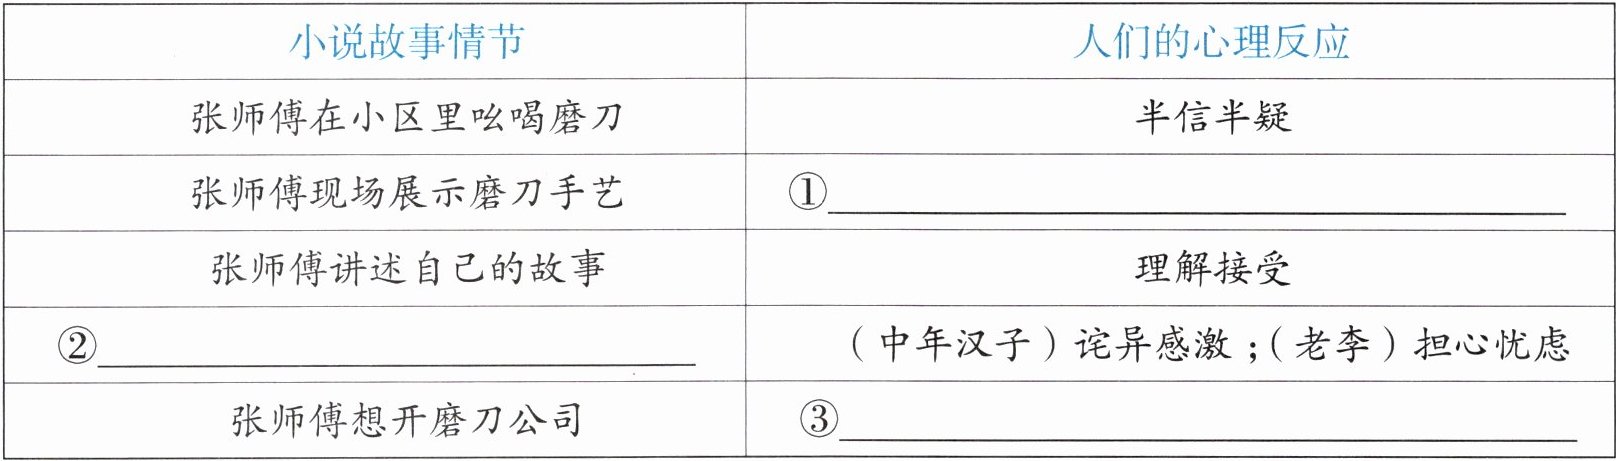 小说故事情节 人们的心理反应
张师傅在小区里吆喝磨刀 半信半疑
张师傅现场展示磨刀手艺 ①
张师傅讲述自己的故事 理解接受
② (中年汉子)诧异感激;(老李)担心忧虑
张师傅想开磨刀公司 ③